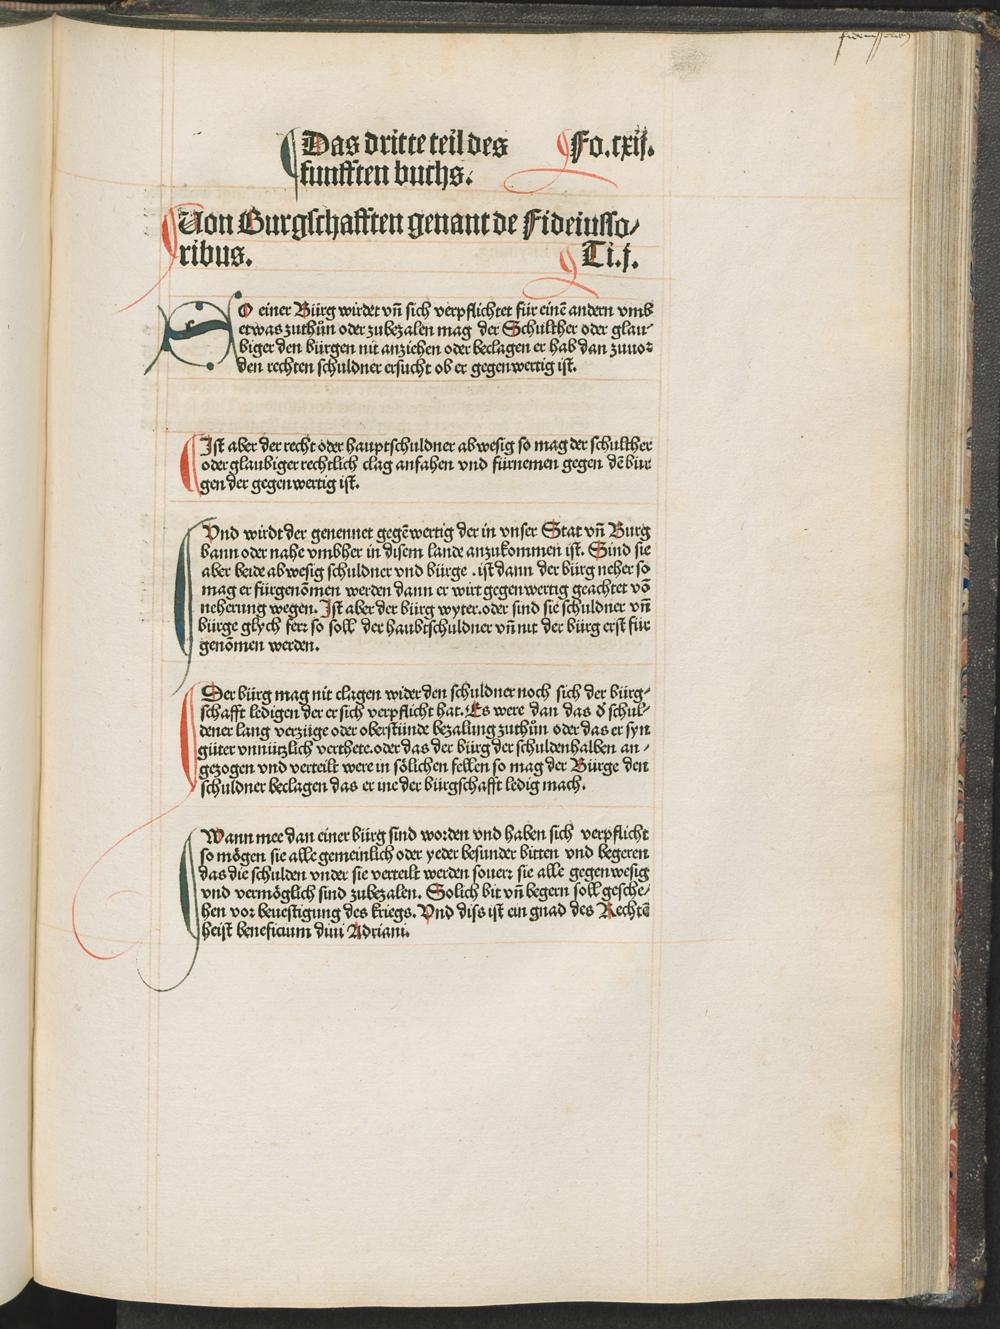 Das dritte teil des Fo.cxij.
funfften buchs.
Von Burgschafften genant de Fideiusso/
ribus. Ti.j.
SO einer Bürg wirdet vn̄ sich verpflichtet für einē andern vmb
etwas zuthůn oder zubezalen mag der Schulther oder glau-
biger den bürgen nit anziehen oder beclagen er hab dan zuuor
den rechten schuldner ersucht ob er gegenwertig ist.
Ist aber der recht oder hauptschuldner abwesig so mag der schulther
oder glaubiger rechtlich clag anfahen vnd fürnemen gegen dē bür
gen der gegenwertig ist.
Vnd wirdt der genennet gegēwertig der in vnser Stat vn̄ Burg
bann oder nahe vmbher in disem lande anzukommen ist. Sind sie
aber beide abwesig schuldner vnd bürge . ist dann der bürg neher so
mag er fürgenōmen werden dann er wirt gegenwertig geachtet vō
neherung wegen. Ist aber der bürg wyter. oder sind sie schuldner vn̄
bürge glych ferr so soll der haubtschuldner vn̄ nit der bürg erst für
genōmen werden.
Der bürg mag nit clagen wider den schuldner noch sich der bürg-
schafft ledigen der er sich verpflicht hat. Es were dan das d̕ schul-
dener lang verzüge oder oberstünde bezalung zuthůn oder das er syn
güter vnnützlich verthete. oder das der bürg der schuldenhalben an-
gezogen vnd verteilt were in sölichen fellen so mag der Bürge den
schuldner beclagen das er ine der bürgschafft ledig mach.
Wann mee dan einer bürg sind worden vnd haben sich verpflicht
so mögen sie alle gemeinlich oder yeder besunder bitten vnd begeren
das die schulden vnder sie verteilt werden souerr sie alle gegenwesig
vnd vermöglich sind zubezalen. Solich bit vn̄ begern soll gesche/
hen vor beuestigung des kriegs. Vnd diss ist ein gnad des Rechtē
heist beneficium diui Adriani.